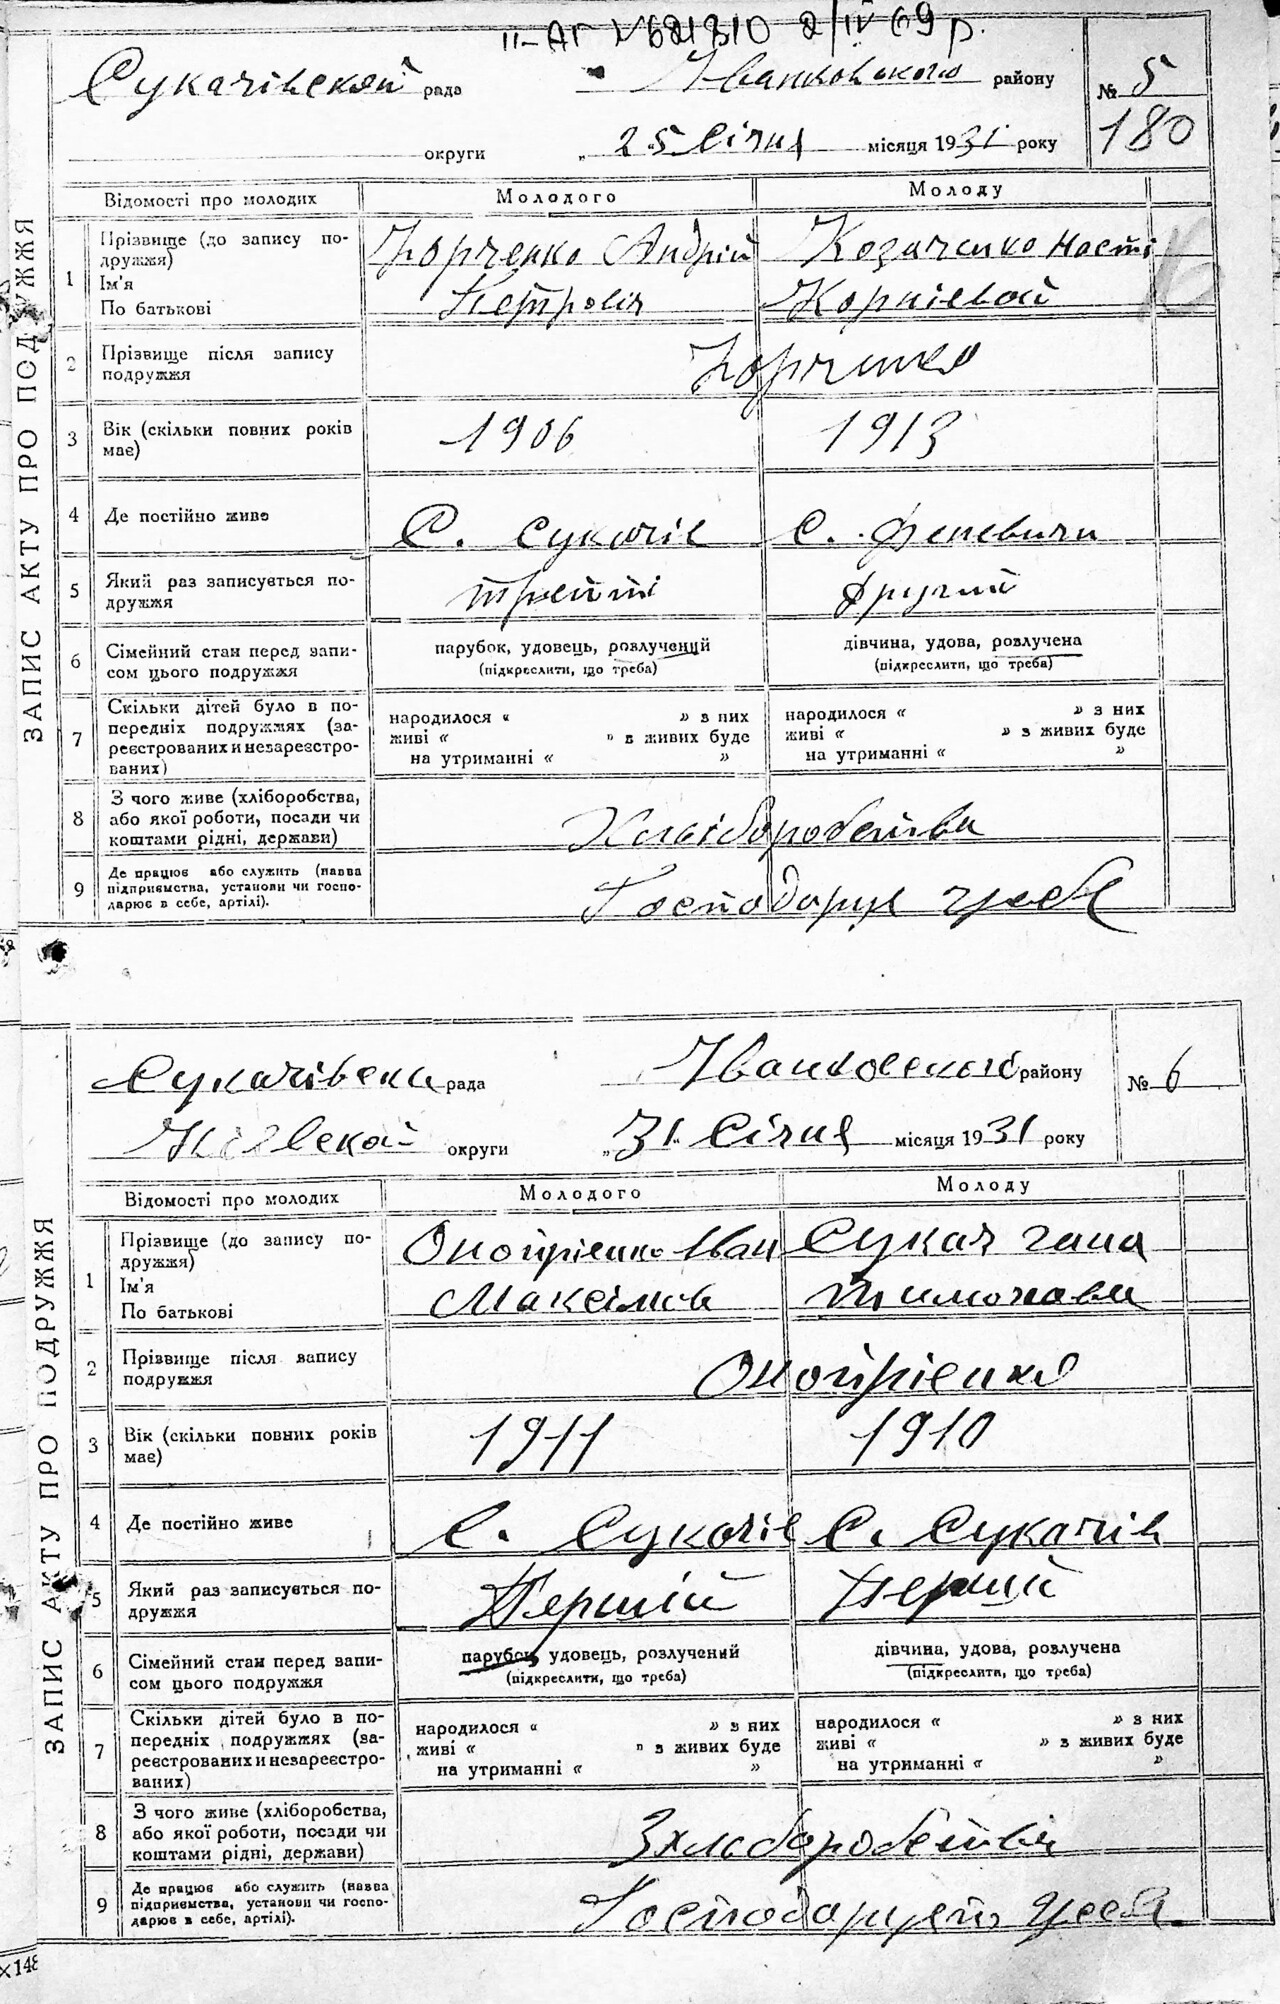 II-АГ № 621310 2/IV 69 р.
Сукачівской рада Іванковського району № 5
округи „ 25 Січня місяця 1931 року 180
ЗАПИС АКТУ ПРО ПОДРУЖЖЯ
Відомості про молодих Молодого Молоду
1 Прізвище (до запису подружжя) Андрій Козаченко Насті
Ім'я
По батькові Петровіч Корнієвой
2 Прізвище після запису
подружжя
3 Вік (скільки повних років 1906 1913
має)
4 Де постійно живе С. Сукачів С. Феневичи
5 Який раз записується по- третій другий
дружжя
6 Сімейний стан перед запи- парубок, удовець, розлучений дівчина, удова, розлучена
сом цього подружжя (підкреслити, що треба) (підкреслити, що треба)
7 Скільки дітей було в по-
передніх подружжях (за- народилося “ ” з них народилося “ ” з них
реєстрованих и незареєстро- живі “ ” в живих буде живі “ ” з живих буде
ваних) на утриманні “ ” на утриманні “ ”
8 З чого живе (хліборобства,
або якої роботи, посади чи Хліборобства
коштами рідні, держави)
9 Де працює або служить (назва
підприємства, установи чи госпо- Господарує
дарює в себе, артілі).
Сукачівска рада Іванковской району № 6
Киівской округи „ 31 Січня місяця 1931 року
ЗАПИС АКТУ ПРО ПОДРУЖЖЯ
Відомості про молодих Молодого Молоду
1 Прізвище (до запису по- Оноприенко Іван Сукач гана
дружжя)
Ім'я
По батькові Максімов Тимохова
2 Прізвище після запису Оноприенко
подружжя
3 Вік (скільки повних років 1911 1910
має)
4 Де постійно живе С. Сукачів С. Сукачів
5 Який раз записується по- Першій Першій
дружжя
6 Сімейний стан перед запи- парубок, удовець, розлучений дівчина, удова, розлучена
сом цього подружжя (підкреслити, що треба) (підкреслити, що треба)
7 Скільки дітей було в по-
передніх подружжях (за- народилося “ ” з них народилося “ ” з них
реєстрованих и незареєстро- живі “ ” з живих буде живі “ ” з живих буде
ваних) на утриманні “ ” на утриманні “ ”
8 З чого живе (хліборобства,
або якої роботи, посади чи
коштами рідні, держави)
9 Де працює або служить (назва
підприємства, установи чи госпо- Господарують
дарює в себе, артілі).
×148